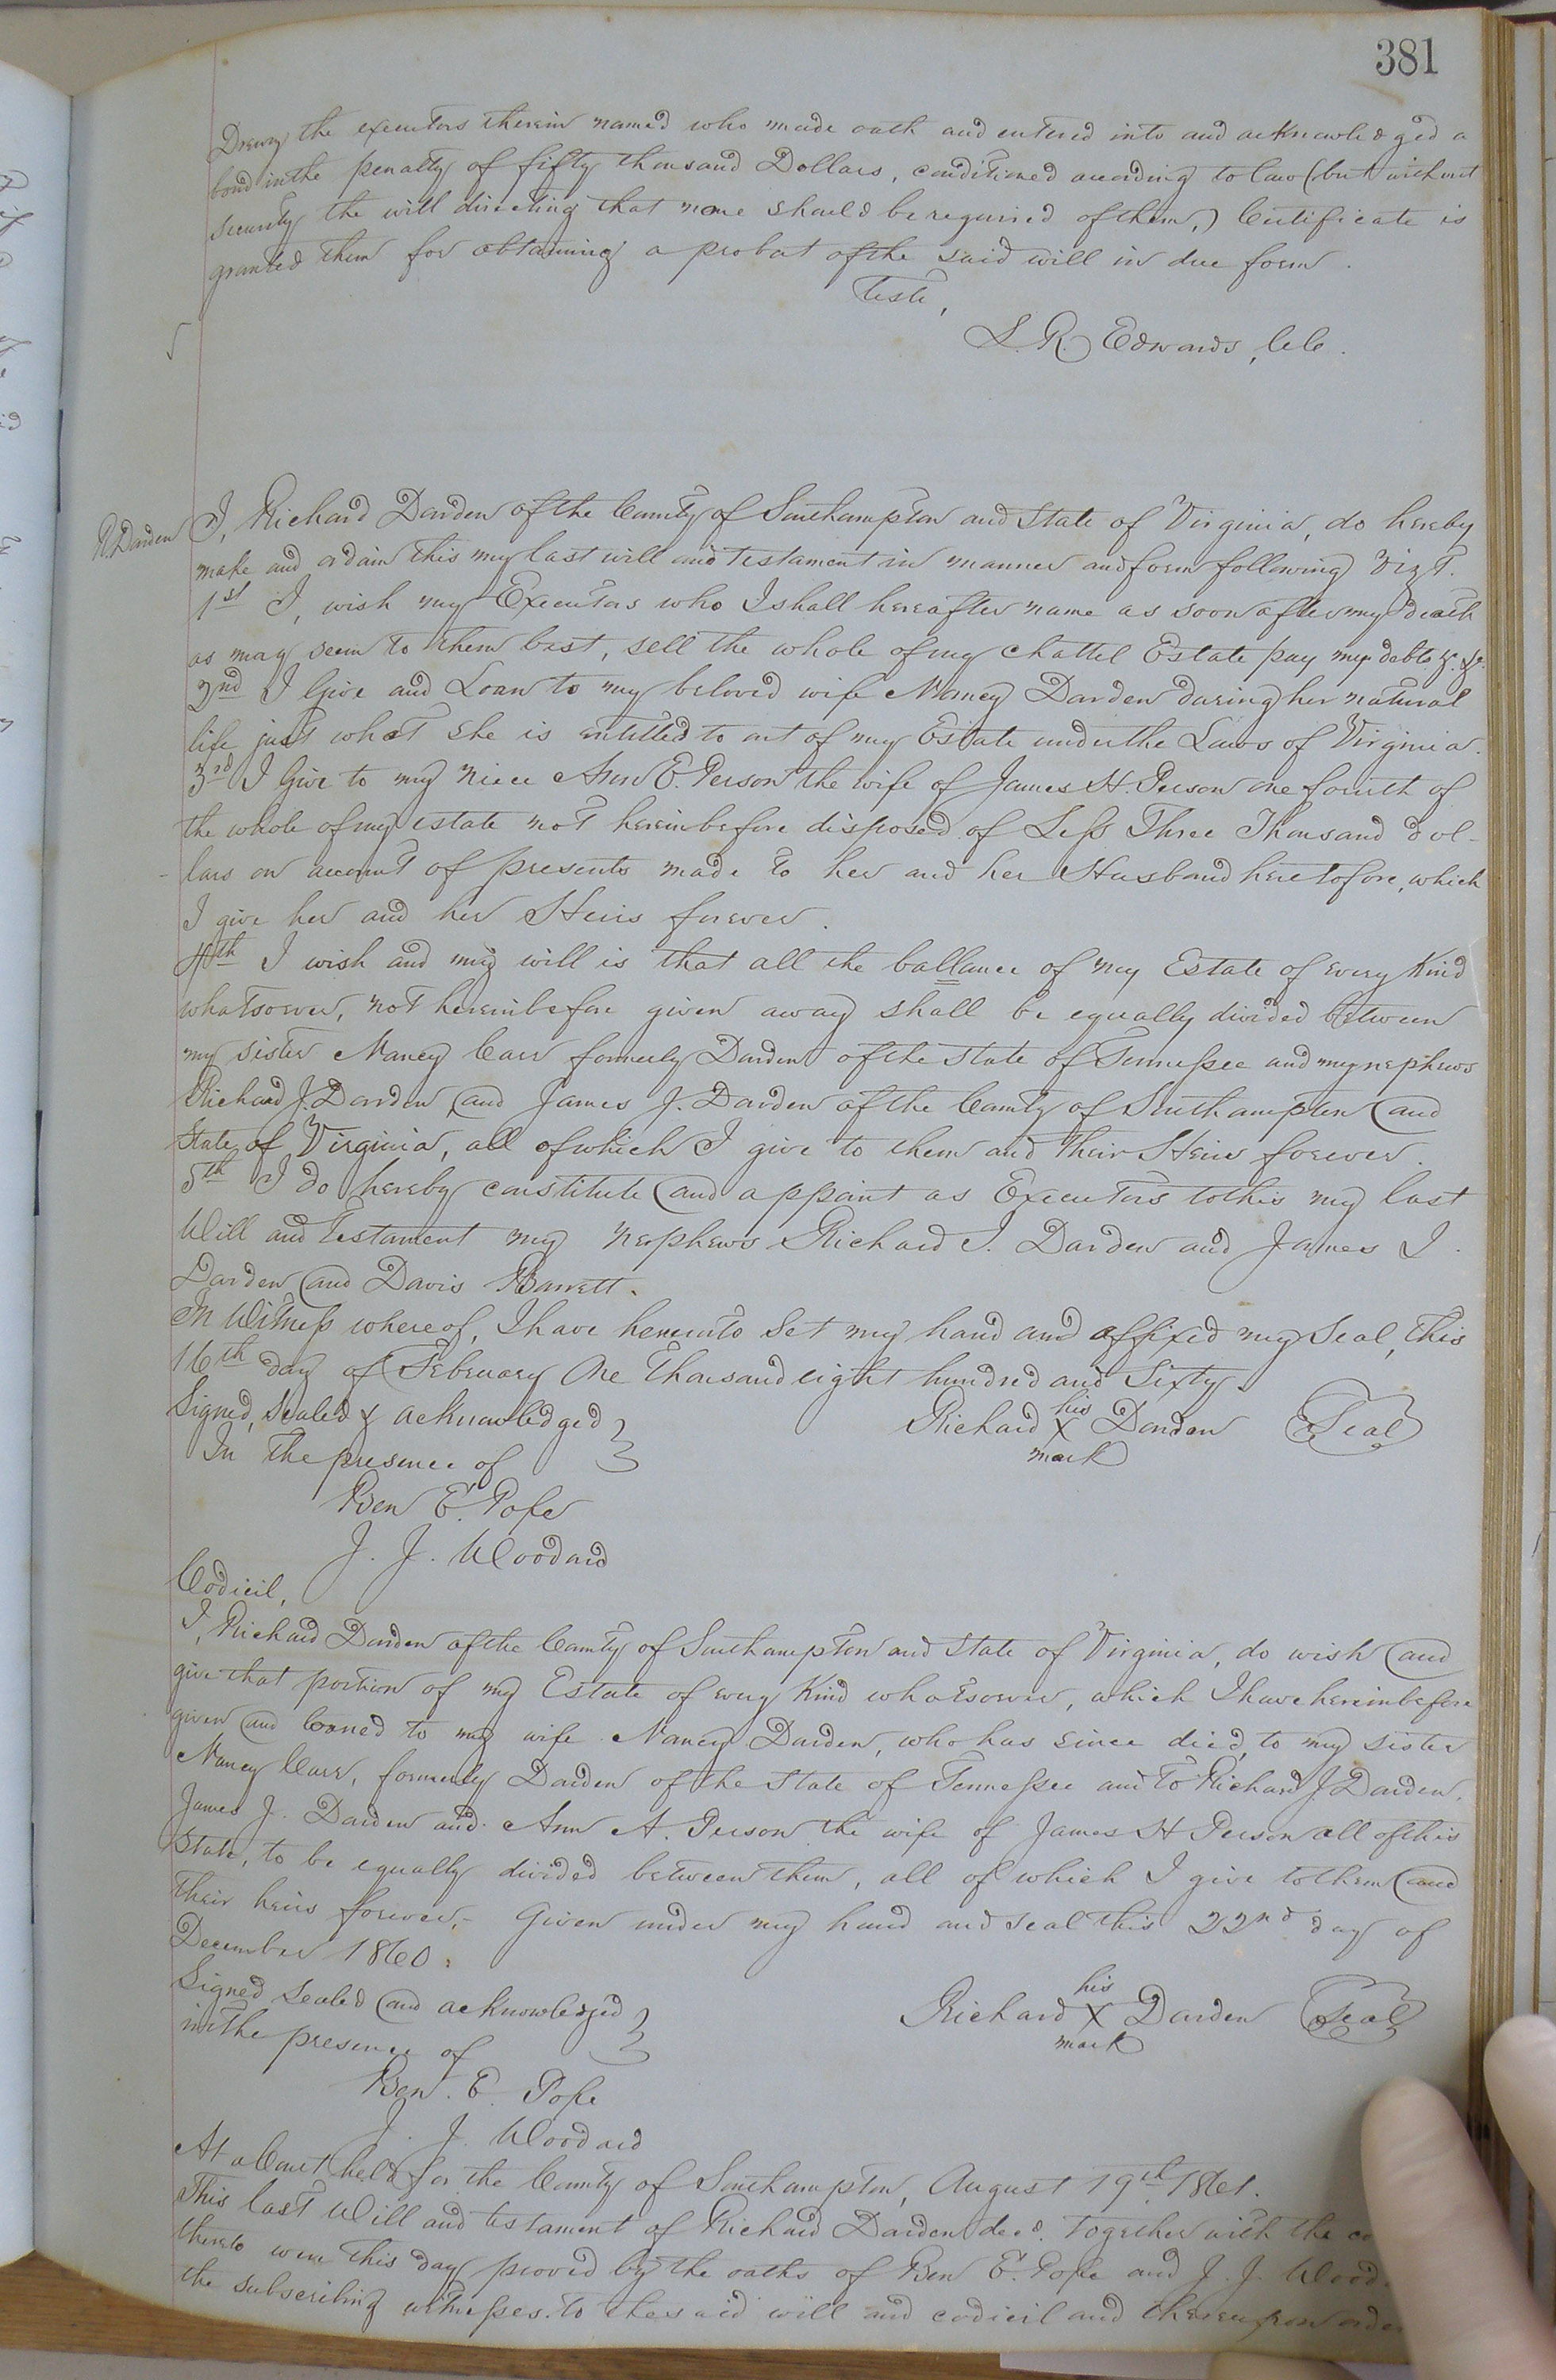 381
Drewry the executors therein named who made oath and entered into and acknowledged a
bond in the penalty of fifty thousand Dollars, conditioned according to law (but without
security the will directing that none should be required of them,) Certificate is
granted them for obtaining a probat of the said will in due form.
Teste,
L. R. Edwards, C.C.
R. Darden
I, Richard Darden of the County of Southampton and State of Virginia, do hereby
make and ordain this my last will and testament in manner and form following Vizt.
1st I, wish my Executors who I shall hereafter name as soon after my death
as may seem to them best, sell the whole of my chattel Estate pay my debts &c. &c.
2nd I Give and Loan to my beloved wife Nancy Darden during her natural
life just what she is entitled to out of my Estate under the Laws of Virginia.
3rd I Give to my niece Ann E. Person the wife of James H. Person one fourth of
the whole of my estate not hereinbefore disposed of Less Three Thousand dol-
lars on account of presents made to her and her Husband heretofore, which
I give her and her Heirs forever.
4th I wish and my will is that all the ballance of my Estate of every Kind
whatsoever, not hereinbefore given away shall be equally divided between
my sister Nancy Carr formerly Darden of the state of Tennessee and my nephews
Richard J. Darden, and James J. Darden of the County of Southampton and
State of Virginia, all of which I give to them and their Heirs forever.
5th I do hereby constitute and appoint as Executors to this my last
Will and Testament my nephews Richard J. Darden and James J.
Darden and Davis Barrett.
In Witness whereof, I have hereunto set my hand and affixed my Seal, this
16th day of February One Thousand eight hundred and Sixty.
Signed, Sealed & acknowledged
In the presence of
Richard his X mark Darden Seal
Ben E. Pope
J. J. Woodard
Codicil,
I, Richard Darden of the County of Southampton and State of Virginia, do wish and
give that portion of my Estate of every Kind whatsoever, which I have hereinbefore
given and loaned to my wife Nancy Darden, who has since died, to my sister
Nancy Carr, formerly Darden of the State of Tennessee and to Richard J. Darden,
James J. Darden and Ann A. Person the wife of James H Person all of this
State, to be equally divided between them, all of which I give to them and
their heirs forever,- Given under my hand and seal this 22nd day of
December 1860.
Signed Sealed and acknowledged
in the presence of
Richard his X mark Darden Seal
Ben. E. Pope
J. J. Woodard
At a Court held for the County of Southampton, August 19th 1861.
This last Will and testament of Richard Darden decd. together with the co
thereto were this day proved by the oaths of Ben E. Pope and J. J. Wood
the subscribing witnesses to the said will and codicil and thereupon order